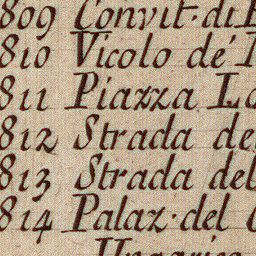 809 Convit. di
810 Vicolo de'
811 Piazza
812 Strada
813 Strada
814 Palaz. del